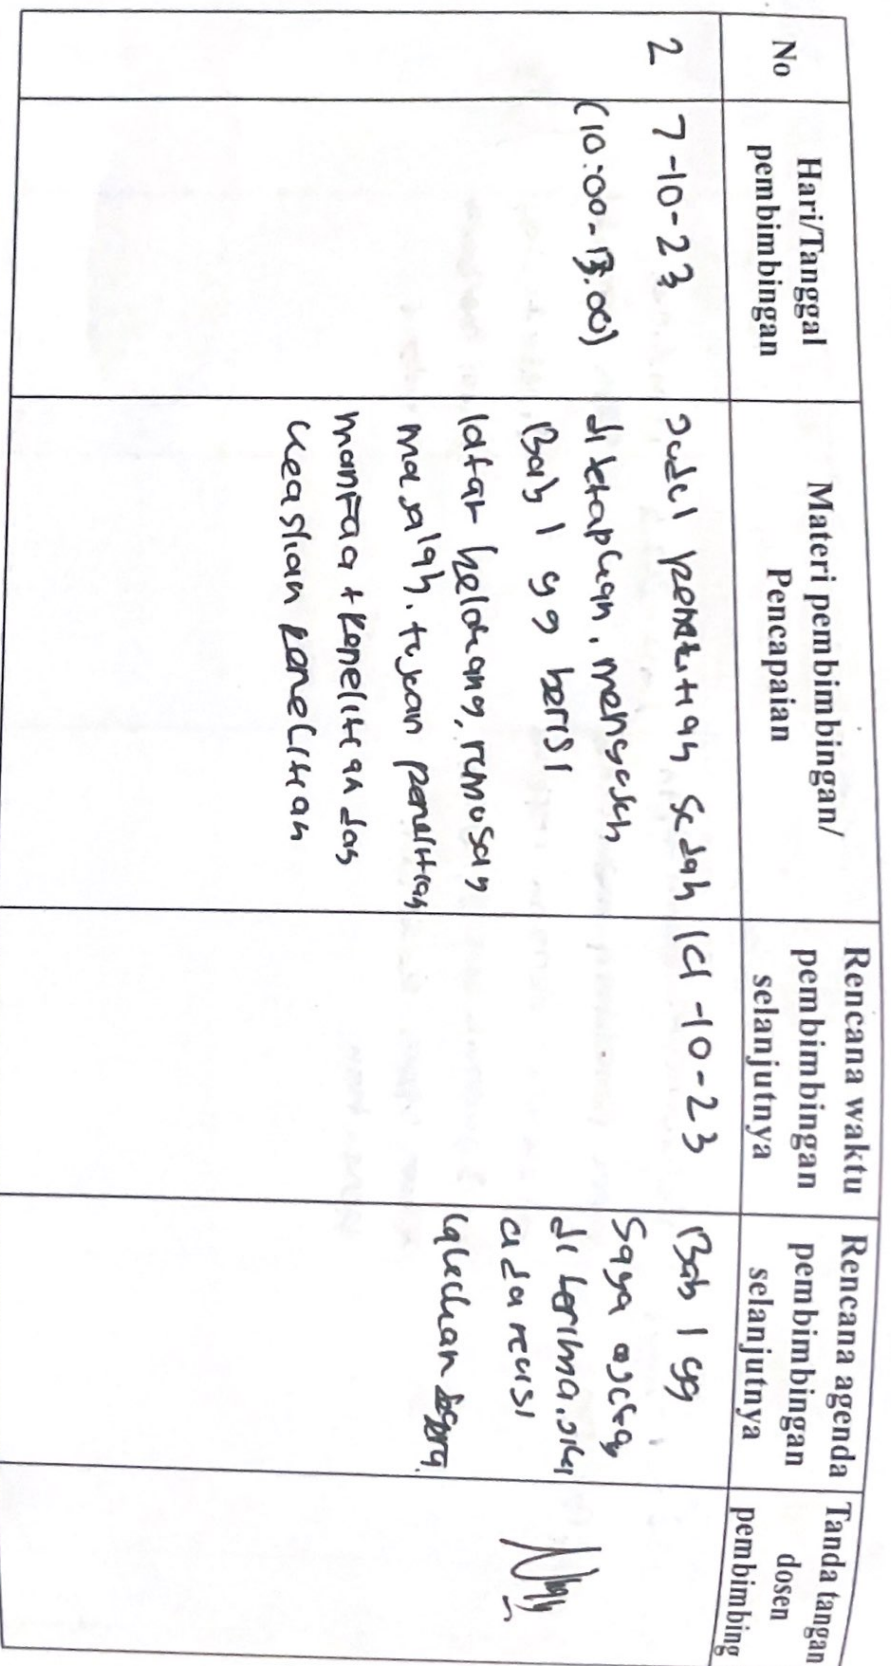 No
Hari/Tanggal
pembimbingan
Materi pembimbingan/
Pencapaian
Rencana waktu
pembimbingan
selanjutnya
Rencana agenda
pembimbingan
selanjutnya
Tanda tangan
dosen
pembimbing
2
7-10-23
(10:00-13.00)
Judul penelitian sudah
ditetapkan, mengajukan
Bab 1 yg berisi
latar belakang, rumusan
masalah, tujuan penelitian
manfaat penelitian dan
keaslian penelitian
19-10-23
Bab 1 yg
Saya ajukan
diterima. jika
ada revisi
lakukan segera.